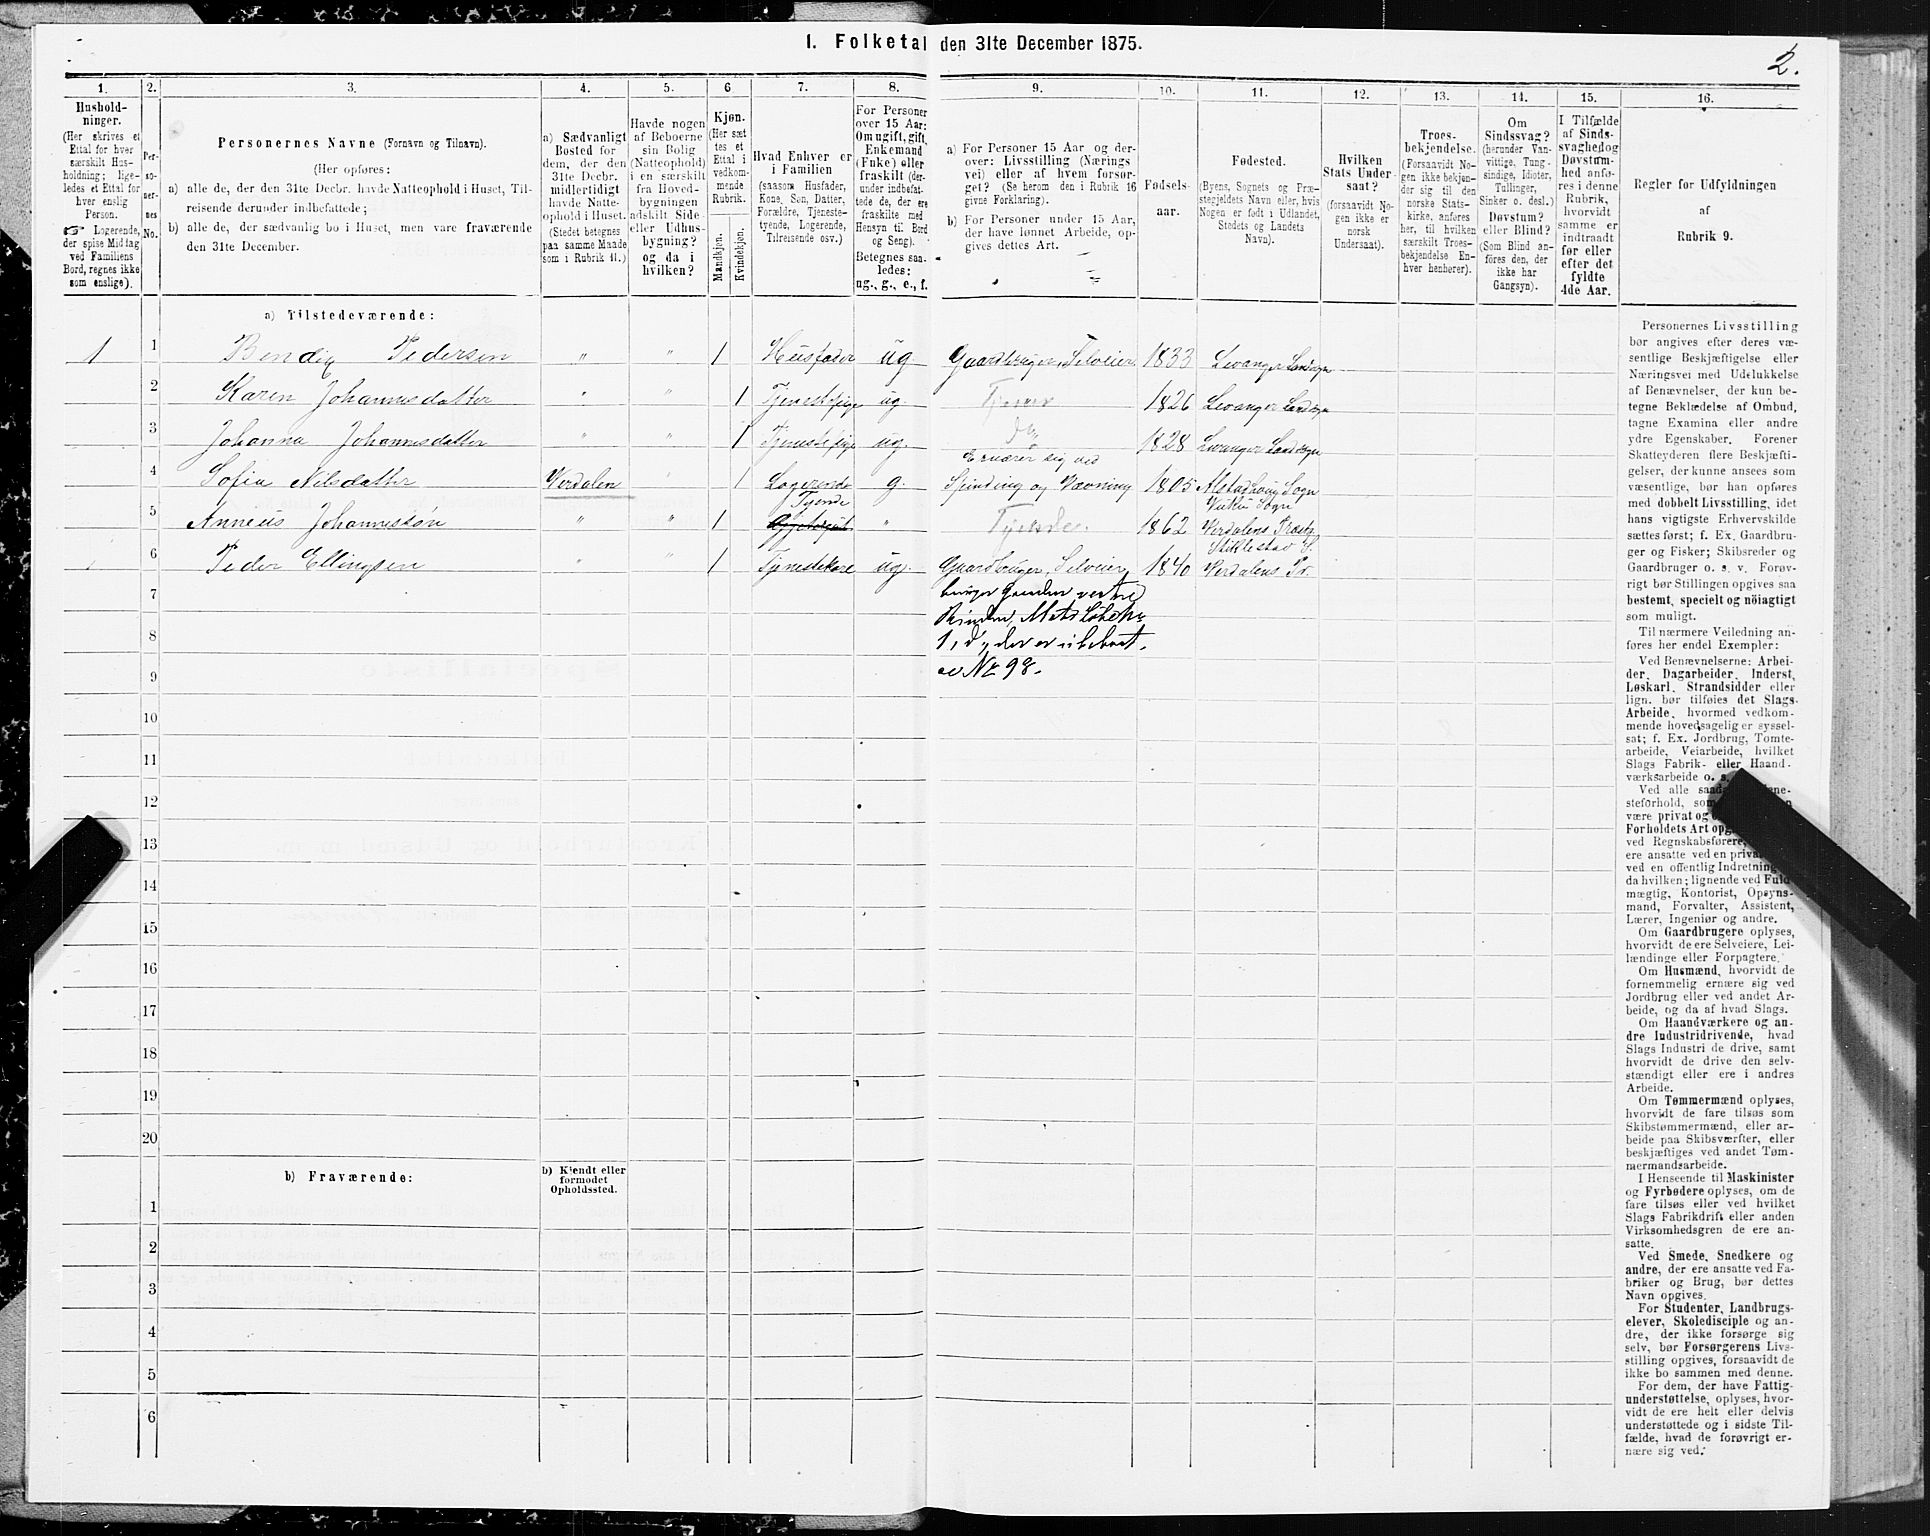 I. Folketal den 31te December 1875.
2.
1.
Hushold-
ninger.
(Her skrives et
Ettal for hver
særskilt Hus-
holdning; lige-
ledes et Ettal for
hver enslig
Person.
☞ Logerende,
der spise Middag
ved Familiens
Bord, regnes ikke
som enslige).
2.
Per-
so-
ner-
nes
No.
3.
Personernes Navne (Fornavn og Tilnavn).
(Her opføres:
a) alle de, der den 31te Decbr. havde Natteophold i Huset, Til-
reisende derunder indbefattede;
b) alle de, der sædvanlig bo i Huset, men vare fraværende
den 31te December.
4.
a) Sædvanligt
Bosted for
dem, der den
31te Decbr.
midlertidigt
havde Natte-
ophold i Huset.
(Stedet betegnes
paa samme Maade
som i Rubrik 11.)
5.
Havde nogen
af Beboerne
sin Bolig
(Natteophold)
i en særskilt
fra Hoved-
bygningen
adskilt Side-
eller Udhus-
bygning?
og da i
hvilken?
6
Kjøn.
(Her sæt
tes et
Ettal i
vedkom-
mende
Rubrik.
Mandkjøn.
Kvindekjøn.
7.
Hvad Enhver er
i Familien
(saasom Husfader,
Kone, Søn, Datter,
Forældre, Tjeneste-
tyende, Logerende,
Tilreisende osv.)
8.
For Personer
over 15 Aar:
Om ugift, gift,
Enkemand
(Enke) eller
fraskilt (der-
under indbefat-
tede de, der ere
fraskilte med
Hensyn til Bord
og Seng).
Betegnes saa-
ledes:
ug., g., e., f.
9.
a) For Personer 15 Aar og der-
over: Livsstilling (Nærings
vei) eller af hvem forsør-
get? (Se herom den i Rubrik 16
givne Forklaring).
b) For Personer under 15 Aar,
der have lønnet Arbeide, op-
gives dettes Art.
10.
Fødsels-
aar.
11.
Fødested.
(Byens, Sognets og Præ-
stegjeldets Navn eller, hvis
Nogen er født i Udlandet,
Stedets og Landets
Navn).
12.
Hvilken
Stats Under-
saat?
(forsaavidt No-
gen ikke er
norsk
Undersaat).
13.
Troes-
bekjendelse.
(Forsaavidt No-
gen ikke bekjen-
der sig til den
norske Stats-
kirke, anføres
her, til hvilken
særskilt Troes-
bekjendelse En-
hver henhører).
14.
Om
Sindssvag?
(herunder Van-
vittige, Tung-
sindige, Idioter,
Tullinger,
Sinker o. desl.)
Døvstum?
eller Blind?
(Som Blind an-
føres den, der
ikke har
Gangsyn).
15.
I Tilfælde
af Sinds-
svaghed og
Døvstum-
hed anfø-
res i denne
Rubrik,
hvorvidt
samme er
indtraadt
før eller
efter det
fyldte
4de Aar.
16.
Regler for Udfyldningen
af
Rubrik 9.
a) Tilstedeværende:
1 1 Bendig Pedersen " " 1 Husfader ug. Gaardbruger, Selveier 1833 Levanger Landsogn
2 Karen Johannesdatter " " 1 Tjenestepige ug. Tjener 1826 Levanger Landsogn
3 Johanna Johannesdatter " " 1 Tjenestepige ug. Do 1828 Levanger Landsogn
Ernærer sig ved
4 Sofia Nilsdatter Verdalen " 1 Logerende g. Spinding og Vævning 1805 Alstadhoug Sogn
Tyende Vuku Sogn
5 Anneus Johannesøn " " 1 " Tjener 1862 Verdalens Præstg.
Stiklestad S.
6 Peder Ellingsen " " 1 Tjenestekarl ug. Gaardbruger, Selveier 1840 Verdalens Pr.
7 bruger Gaarden vestre
8 Rinden, Mats Løbe №
1, d, der er ubeboet.
9 cc № 98.
10
11
12
13
14
15
16
17
18
19
20
b) Fraværende:
b) Kjendt eller
formodet
Opholdssted.
1
2
3
4
5
6
Personernes Livsstilling
bør angives efter deres væ-
sentlige Beskjæftigelse eller
Næringsvei med Udelukkelse
af Benævnelser, der kun be-
tegne Beklædelse af Ombud,
tagne Examina eller andre
ydre Egenskaber. Forener
Skatteyderen flere Beskjæfti-
gelser, der kunne ansees som
væsentlige, bør han opføres
med dobbelt Livsstilling, idet
hans vigtigste Erhvervskilde
sættes først; f. Ex. Gaardbru-
ger og Fisker; Skibsreder og
Gaardbruger o. s. v. Forøv-
rigt bør Stillingen opgives saa
bestemt, specielt og nöiagtigt
som muligt.
Til nærmere Veiledning an-
føres her endel Exempler:
Ved Benævnelserne: Arbei-
der, Dagarbeider, Inderst,
Løskarl, Strandsidder eller
lign. bør tilføies det Slags
Arbeide, hvormed vedkom-
mende hovedsagelig er syssel-
sat; f. Ex. Jordbrug, Tomte-
arbeide, Veiarbeide, hvilket
Slags Fabrik- eller Haand-
værksarbeide o. s.
Ved alle
steforhold, som
være privat og
Forholdets Art
ved Regnskabsførere,
ere ansatte ved en
ved en offentlig Indretning
da hvilken; lignende ved Fuld-
mægtig, Kontorist, Opsyns-
mand, Forvalter, Assistent,
Lærer, Ingeniør og andre.
Om Gaardbrugere oplyses,
hvorvidt de ere Selveiere, Lei-
lændinge eller Forpagtere.
Om Husmænd, hvorvidt de
fornemmelig ernære sig ved
Jordbrug eller ved andet Ar-
beide, og da af hvad Slags.
Om Haandværkere og an-
dre Industridrivende, hvad
Slags Industri de drive, samt
hvorvidt de drive den selv-
stændigt eller ere i andres
Arbeide.
Om Tømmermænd oplyses,
hvorvidt de fare tilsøs som
Skibstømmermænd, eller ar-
beide paa Skibsværfter, eller
beskjæftiges ved andet Tøm-
mermandsarbeide.
I Henseende til Maskinister
og Fyrbødere oplyses, om de
fare tilsøs eller ved hvilket
Slags Fabrikdrift eller anden
Virksomhedsgren de ere an-
satte.
Ved Smede, Snedkere og
andre, der ere ansatte ved Fa-
briker og Brug, bør dettes
Navn opgives.
For Studenter, Landbrugs-
elever, Skoledisciple og an-
dre, der ikke forsørge sig
selv, bør Forsørgerens Livs-
stilling opgives, forsaavidt de
ikke bo sammen med denne.
For dem, der have Fattig-
understøttelse, oplyses, hvor-
vidt de ere helt eller delvis
understøttede og i sidste Til-
fælde, hvad de forøvrigt er-
nære sig ved.